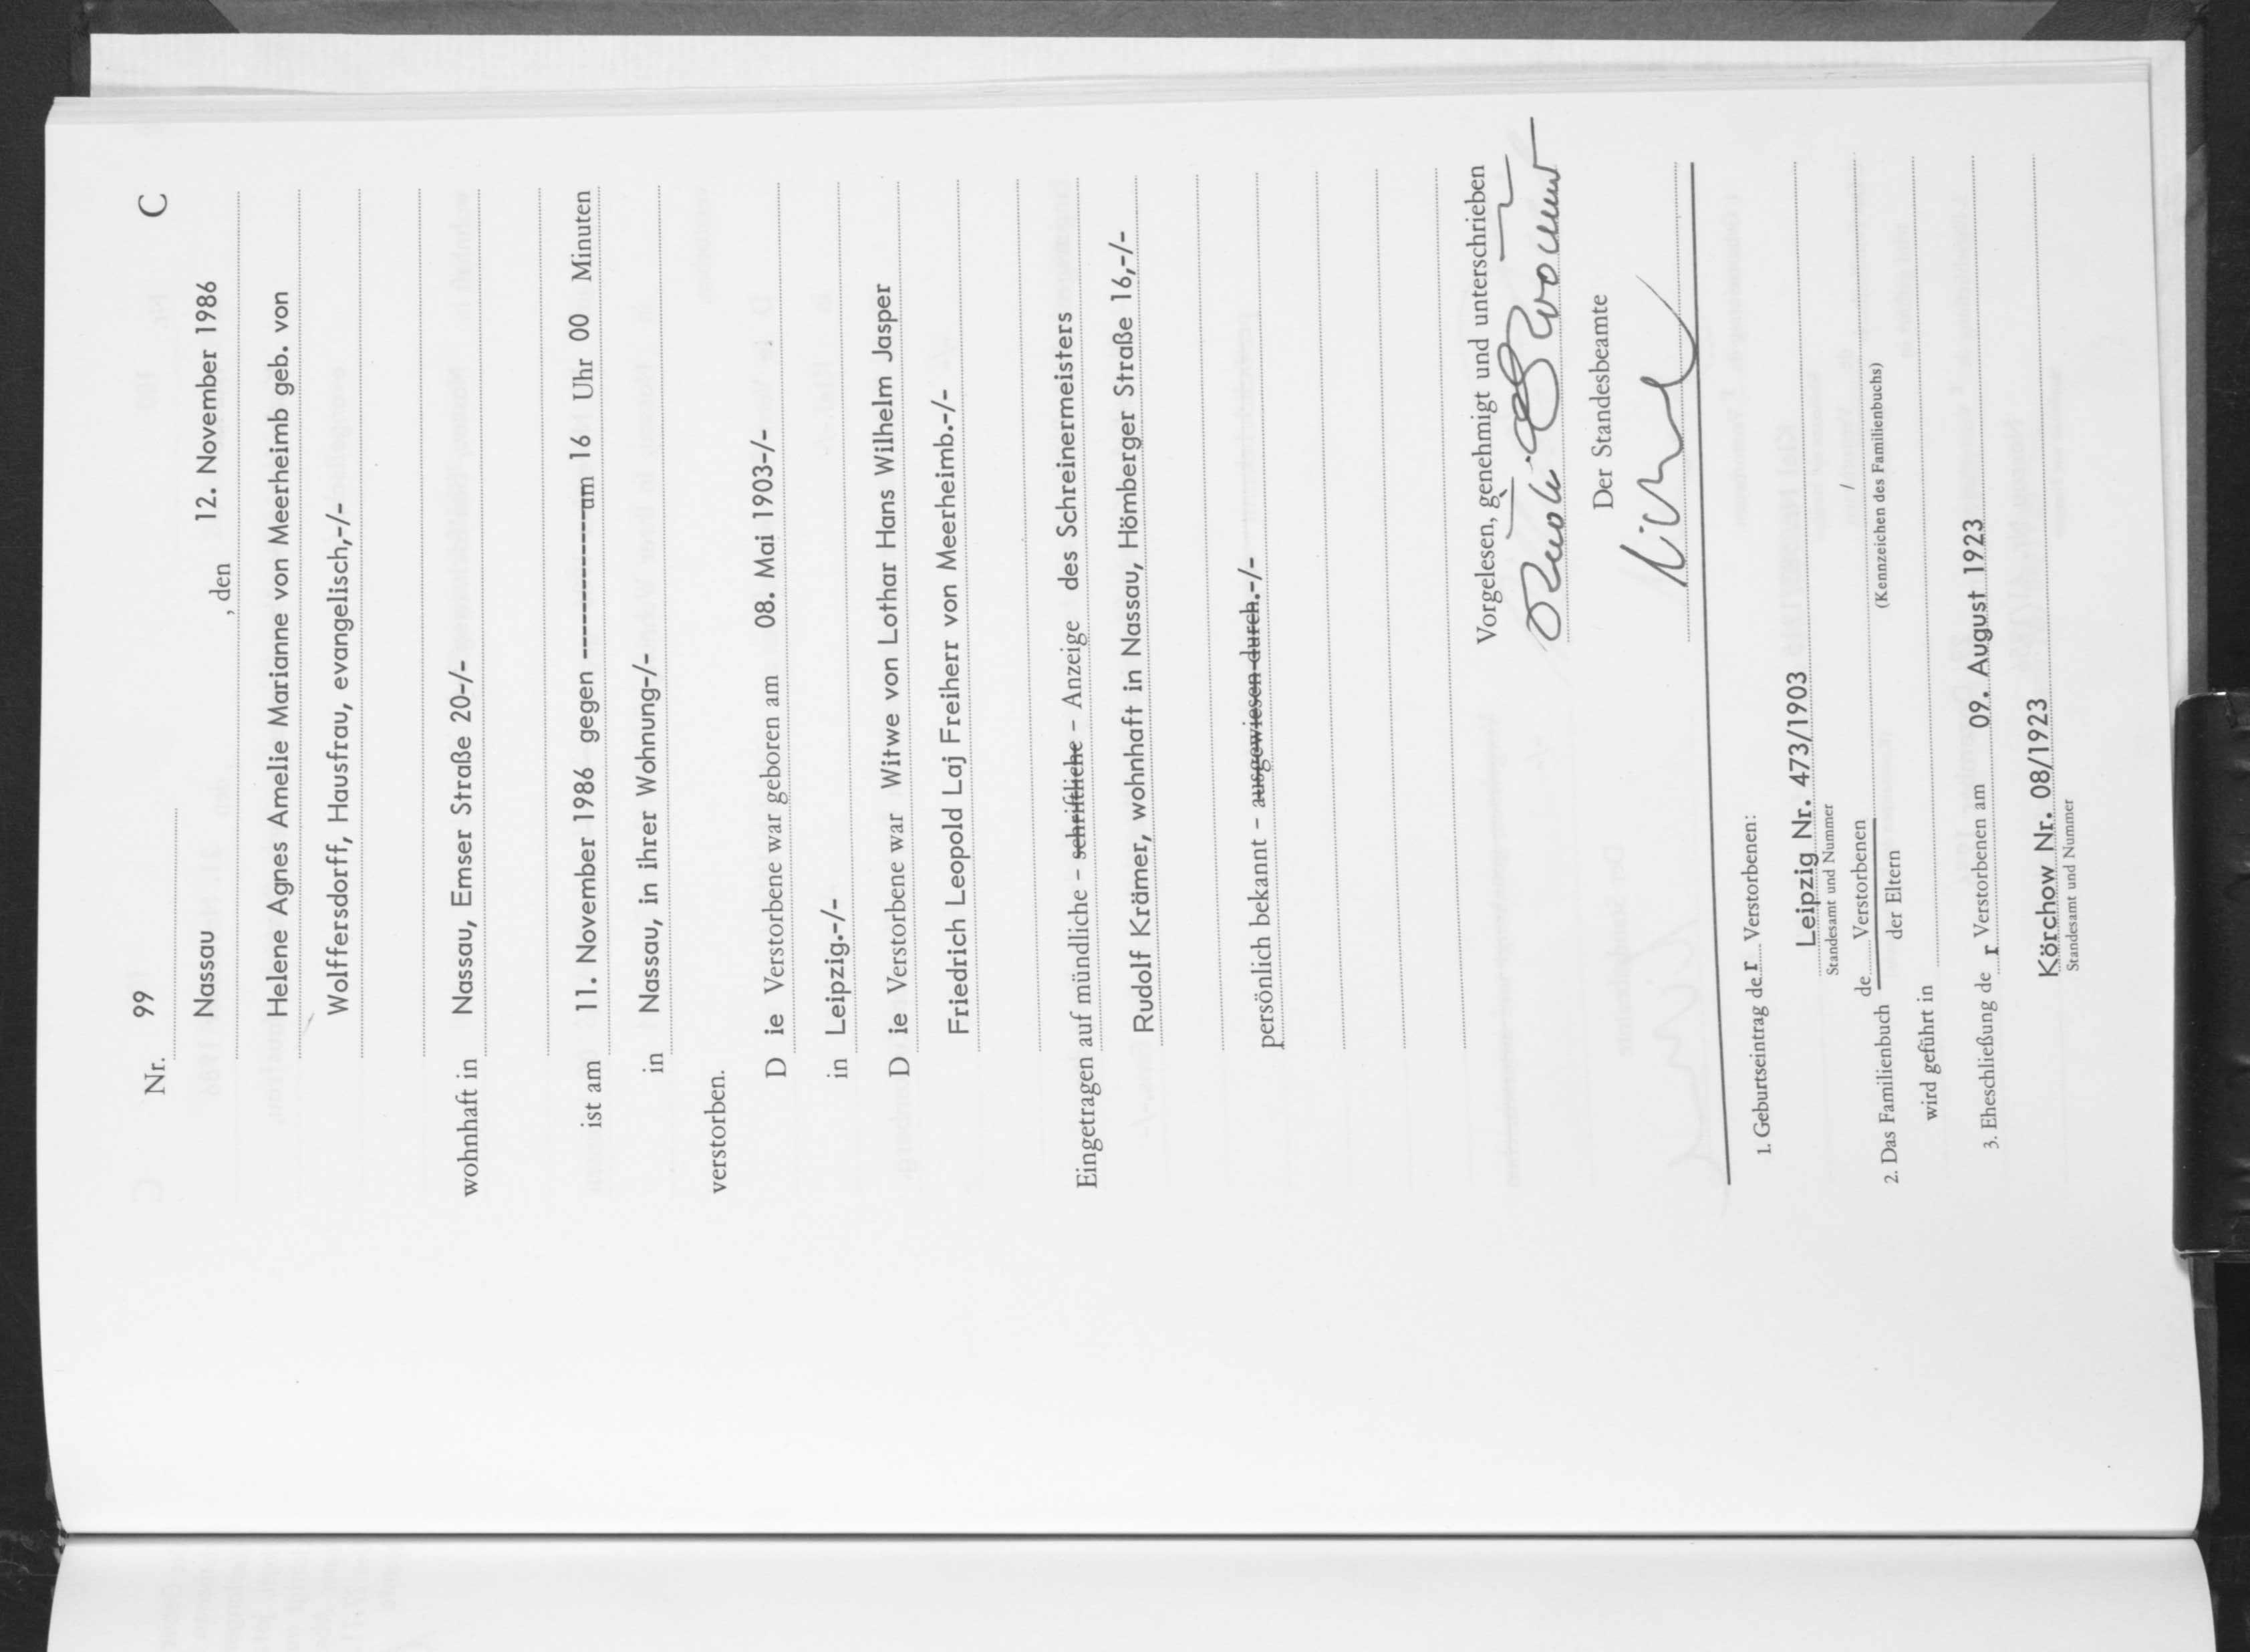 Nr. 99 C
Nassau, den 12. November 1986
Helene Agnes Amelie Marianne von Meerheimb geb. von
Wolffersdorff, Hausfrau, evangelisch,-/-
wohnhaft in Nassau, Emser Straße 20-/-
ist am 11. November 1986 gegen -------------um 16 Uhr 00 Minuten
in Nassau, in ihrer Wohnung-/-
verstorben.
D ie Verstorbene war geboren am 08. Mai 1903-/-
in Leipzig.-/-
D ie Verstorbene war Witwe von Lothar Hans Wilhelm Jasper
Friedrich Leopold Laj Freiherr von Meerheimb.-/-
Eingetragen auf mündliche – schriftliche – Anzeige des Schreinermeisters
Rudolf Krämer, wohnhaft in Nassau, Hömberger Straße 16,-/-
persönlich bekannt – ausgewiesen durch.-/-
Vorgelesen, genehmigt und unterschrieben
Der Standesbeamte
1. Geburtseintrag der Verstorbenen:
Leipzig Nr. 473/1903
Standesamt und Nummer
2. Das Familienbuch de Verstorbenen /
der Eltern (Kennzeichen des Familienbuchs)
wird geführt in
3. Eheschließung de r Verstorbenen am 09. August 1923
Körchow Nr. 08/1923
Standesamt und Nummer